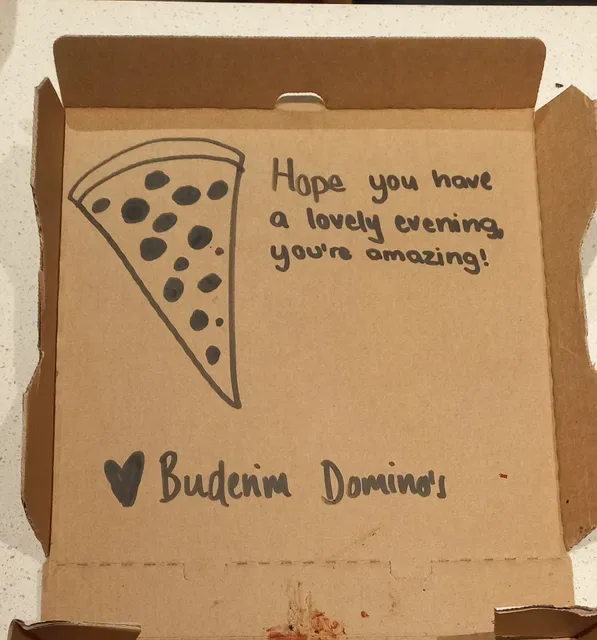 Hope you have
a lovely evening,
you're amazing!
Buderim Domino's